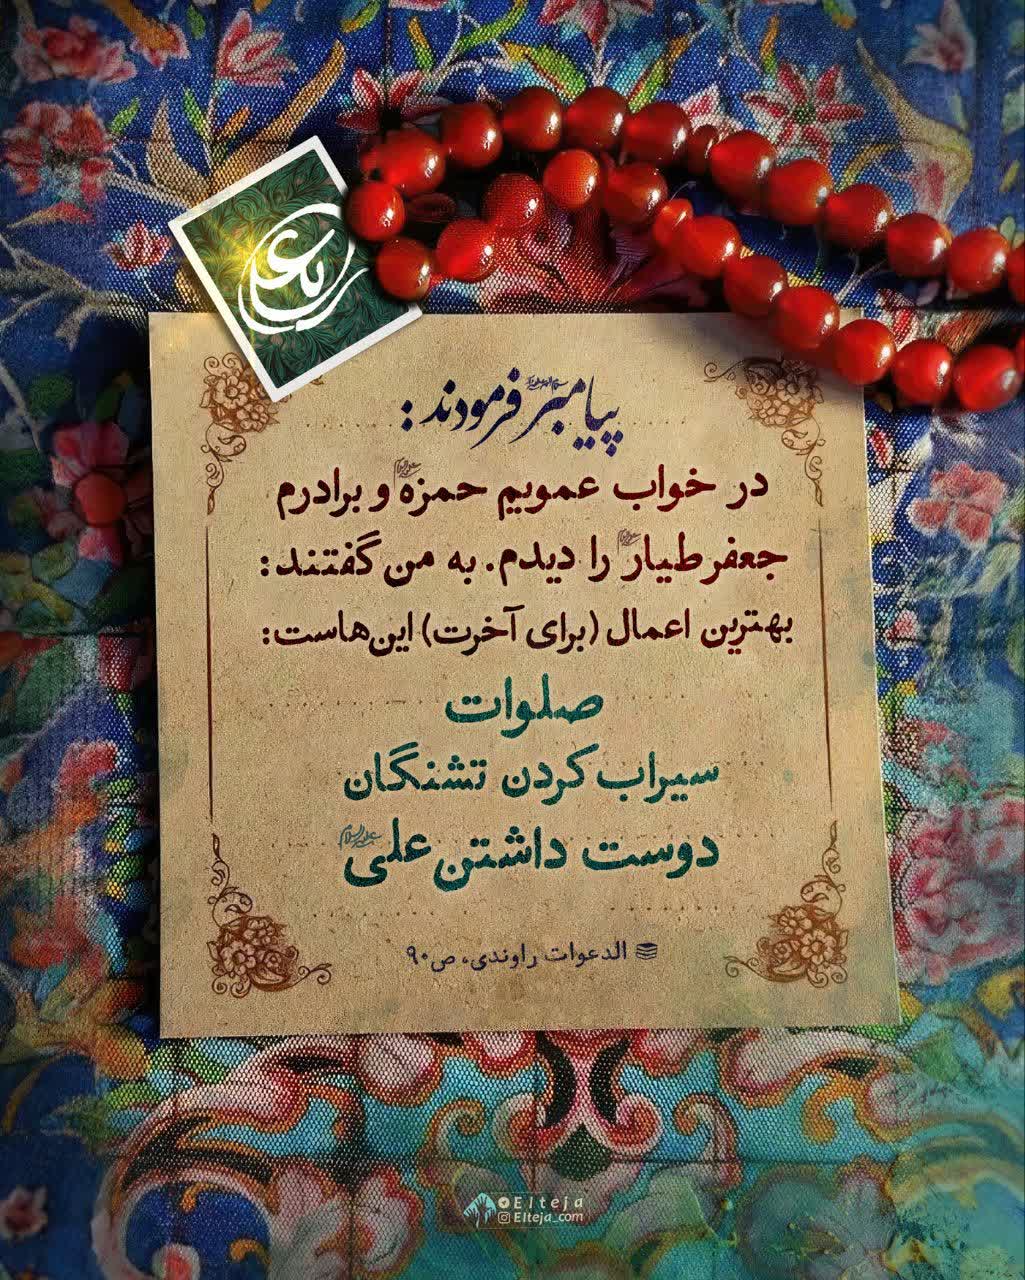 یا علی
پیامبر فرمودند:
در خواب عمویم حمزه و برادرم
جعفر طیار را دیدم. به من گفتند:
بهترین اعمال (برای آخرت) این‌هاست:
صلوات
سیراب کردن تشنگان
دوست داشتن علی علیه‌السلام
الدعوات راوندی، ص۹۰
Elteja
Elteja_com